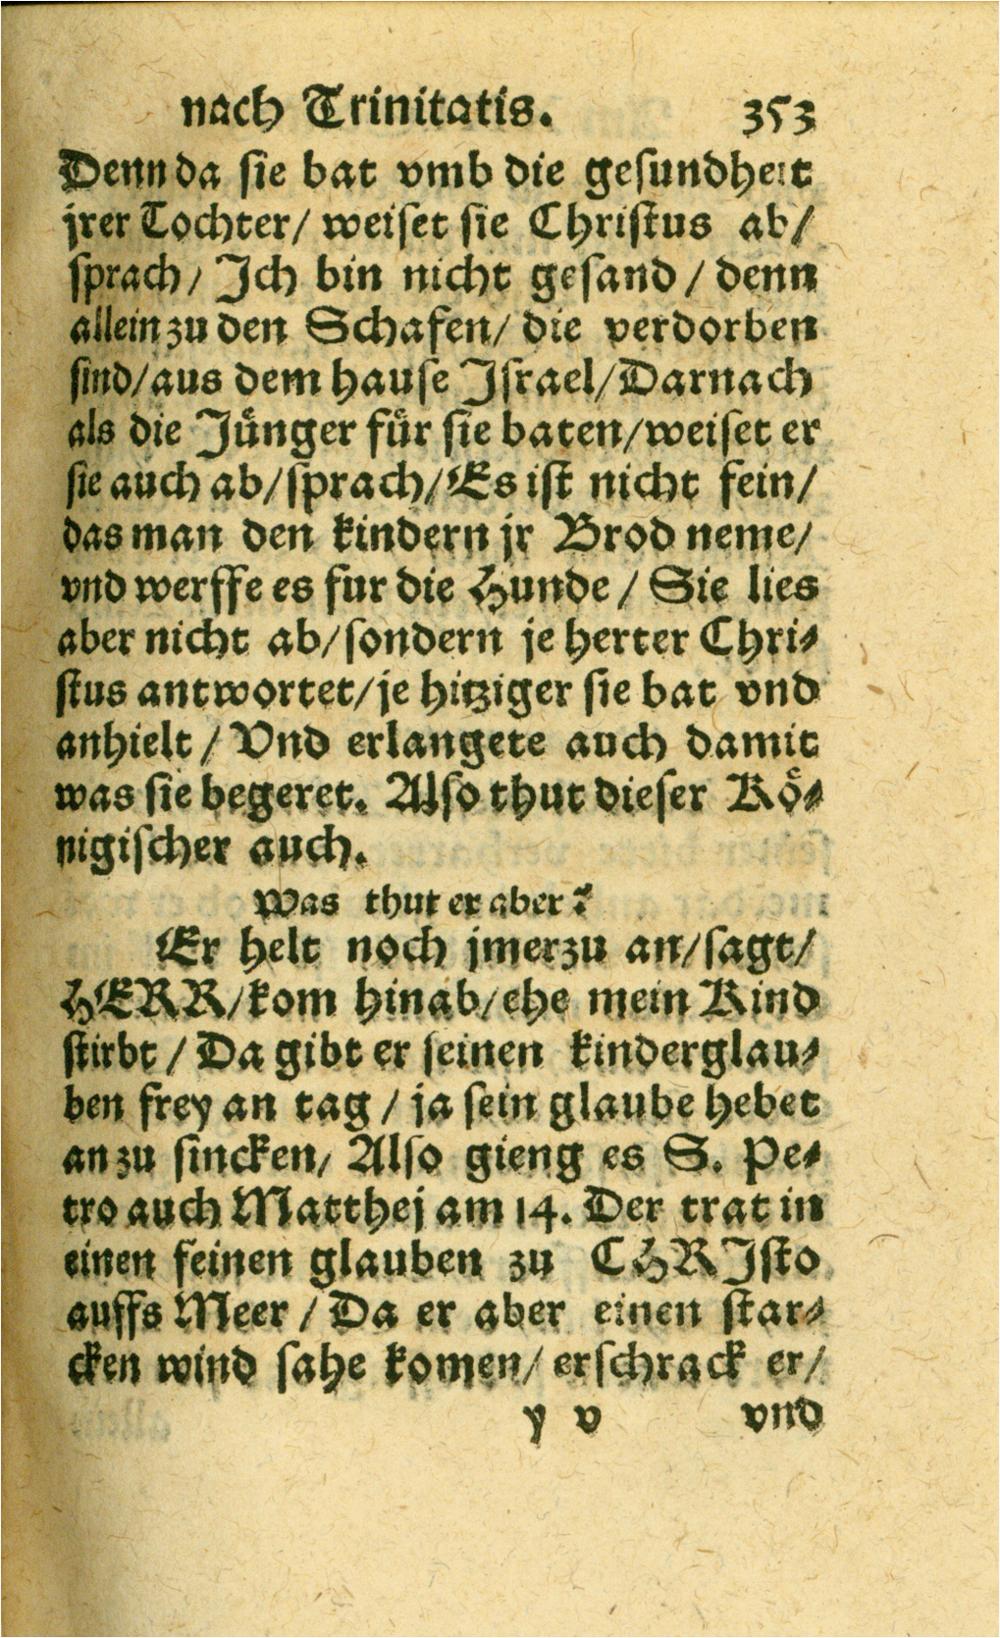 nach Trinitatis. 353
Denn da sie bat vmb die gesundheit
jrer Tochter/ weiset sie Christus ab/
sprach/ Ich bin nicht gesand / denn
allein zu den Schafen/ die verdorben
sind/aus dem hause Israel/Darnach
als die Juͤnger fuͤr sie baten/weiset er
sie auch ab/sprach/Es ist nicht fein/
das man den kindern jr Brod neme/
vnd werffe es fur die Hunde / Sie lies
aber nicht ab/sondern je herter Chri-
stus antwortet/je hitziger sie bat vnd
anhielt / Vnd erlangete auch damit
was sie begeret. Also thut dieser Koͤ-
nigischer auch.
Was thut er aber?
Er helt noch jmerzu an/sagt/
HERR/kom hinab/ehe mein Kind
stirbt / Da gibt er seinen kinderglau-
ben frey an tag / ja sein glaube hebet
an zu sincken/ Also gieng es S. Pe-
tro auch Matthej am 14. Der trat in
einen feinen glauben zu CHRIsto
auffs Meer / Da er aber einen star-
cken wind sahe komen/ erschrack er/
y v vnd